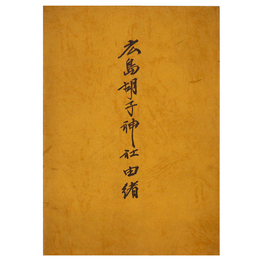 広島胡子神社由緒